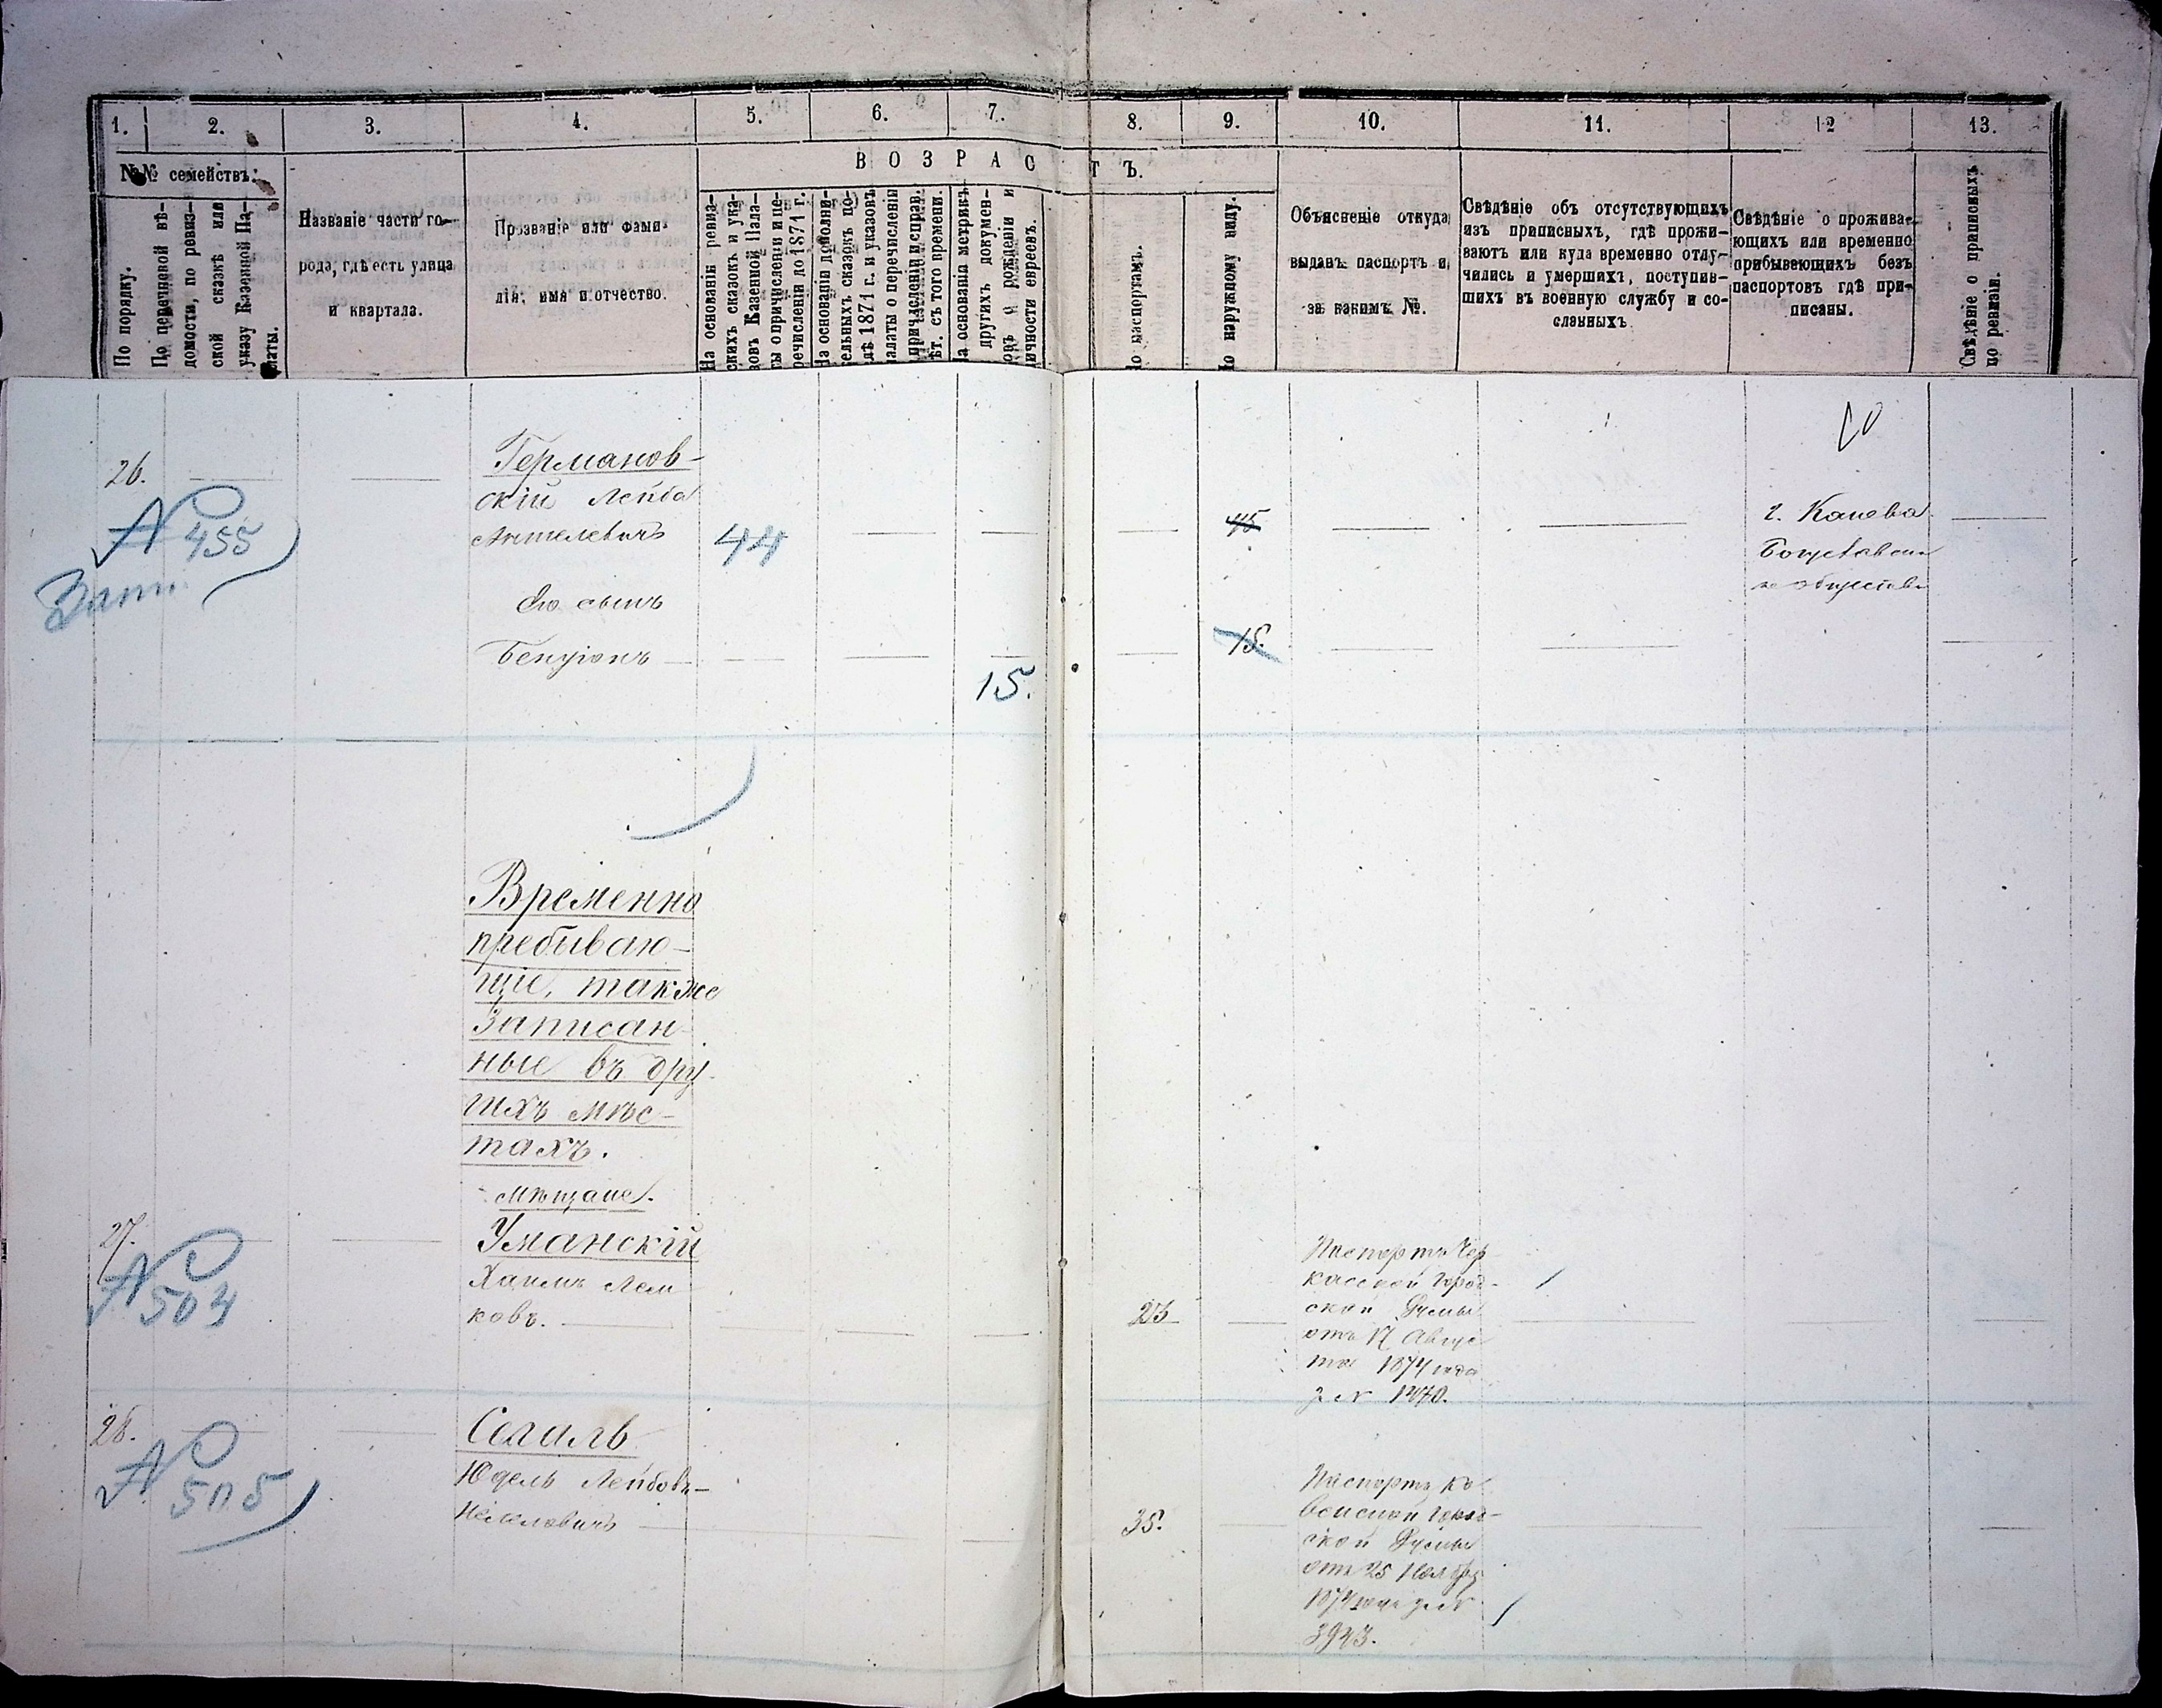 1. 2. 3. 4. 5. 6. 7. 8. 9. 10. 11. 12 13.
№№ семействъ.
ВОЗРАСТЪ.
По порядку.
По перечневой вѣ-
домости, по ревиз-
ской сказкѣ или
указу Казенной Па-
латы.
Названіе части го-
рода, гдѣ есть улица
и квартала.
Прозваніе или фами-
лія, имя и отчество.
На основаніи ревиз-
скихъ сказокъ и ука-
зовъ Казенной Пала-
ты о причисленіи и пе-
речисленіи до 1871 г.
На основаніи дополни-
тельныхъ сказокъ по-
слѣ 1871 г. и указовъ
палаты о перечисленіи
причисленіи и справ.
лѣт. съ того времени.
На основаніи метрикъ
другихъ докумен-
товъ о рожденіи и
личности евреевъ.
По паспортамъ.
По наружному виду.
Объясненіе откуда
выданъ паспортъ и
за какимъ №.
Свѣдѣніе объ отсутствующихъ
изъ приписныхъ, гдѣ прожи-
ваютъ или куда временно отлу-
чились и умершихъ, поступив-
шихъ въ военную службу и со-
сланныхъ
Свѣдѣніе о прожива-
ющихъ или временно
прибывающихъ безъ
паспортовъ гдѣ при-
писаны.
Свѣдѣніе о приписныхъ
по ревизіи.
26.
№ 455
Зап.
Германов-
скій Лейба
Аншелевичъ
44
45
г. Канева
Богуславска
го общества
Его сынъ
Бенціонъ
15.
15.
Временно
пребываю-
щіе, также
записан-
ные въ дру-
гихъ мѣс-
тахъ.
мѣщане.
27.
№ 504
Уманскій
Хаимъ Лем
ковъ.
23
Паспортъ Чер
касской Город-
ской Думы
отъ 17 Авгус
та 1874 года
з № 1470.
28.
№ 505
Сегаль
Юдель Лейбовъ-
35.
Паспортъ Ко
венской Город-
ской Думы
отъ 25 Ноября
1874 года за №
3943.